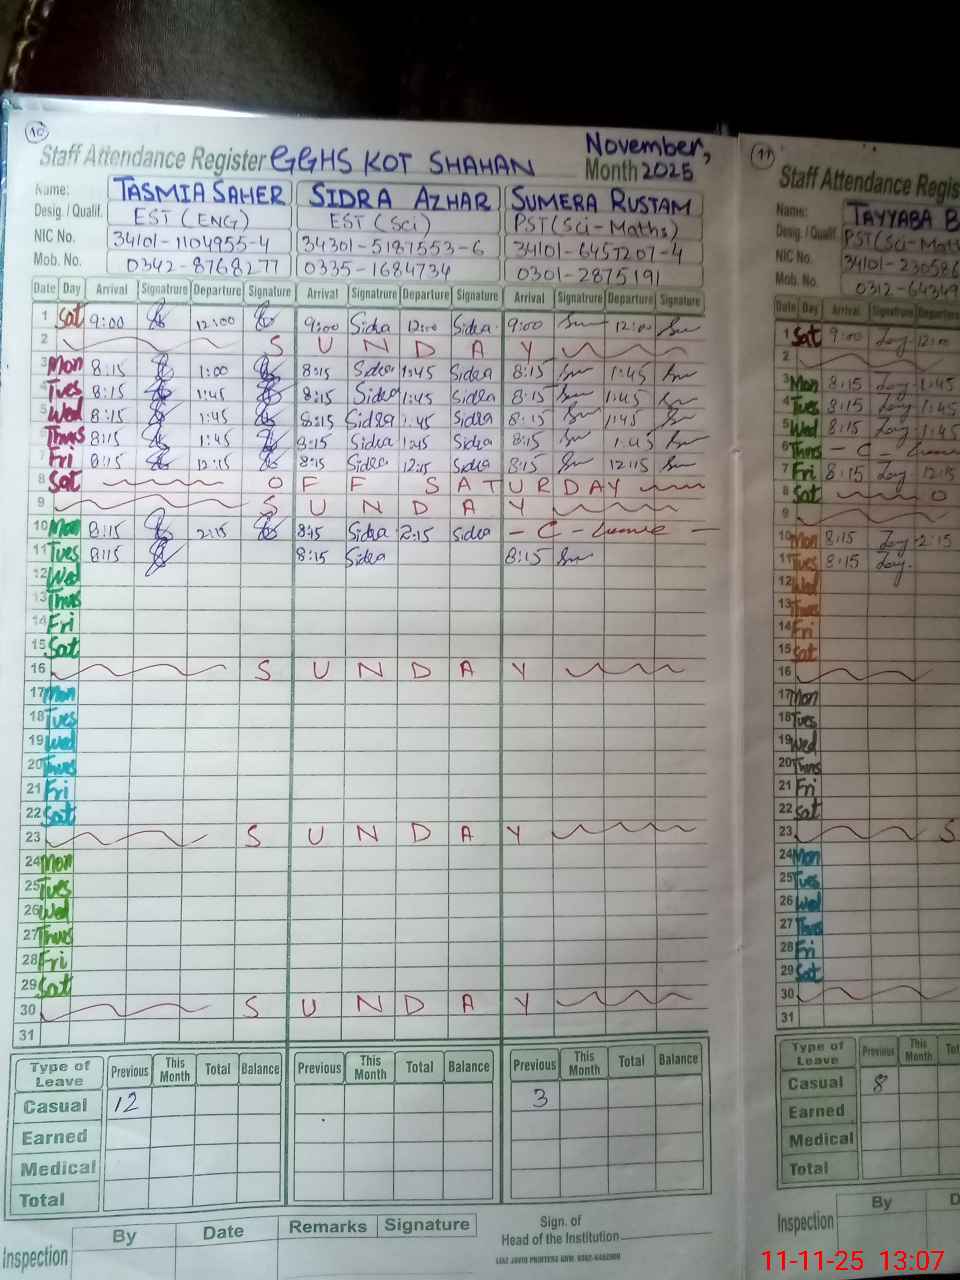 10
Staff Attendance Register GGHS KOT SHAHAN November,
Month 2025
Name: TASMIA SAHER SIDRA AZHAR SUMERA RUSTAM
Desig. / Qualif. EST (ENG) EST (Sci) PST (Sci-Maths)
NIC No. 34101-1104955-4 34301-5187553-6 34101-6457207-4
Mob. No. 0342-8768277 0335-1684734 0301-2875191
Date Day Arrival Signatrure Departure Signature Arrival Signatrure Departure Signature Arrival Signatrure Departure Signature
1 Sat 9:00 12:00 9:00 Sidra 12:00 Sidra 9:00 12:00
2 S U N D A Y
3 Mon 8:15 1:00 8:15 Sidra 1:45 Sidra 8:15 1:45
4 Tues 8:15 1:45 8:15 Sidra 1:45 Sidra 8:15 1:45
5 Wed 8:15 1:45 8:15 Sidra 1:45 Sidra 8:15 1:45
6 Thurs 8:15 1:45 8:15 Sidra 1:45 Sidra 8:15 1:45
7 Fri 8:15 12:15 8:15 Sidra 12:15 Sidra 8:15 12:15
8 Sat O F F S A T U R D A Y
9 S U N D A Y
10 Mon 8:15 2:15 8:15 Sidra 2:15 Sidra - C - Leave -
11 Tues 8:15 8:15 Sidra 8:15
12 Wed
13 Thurs
14 Fri
15 Sat
16 S U N D A Y
17 Mon
18 Tues
19 Wed
20 Thurs
21 Fri
22 Sat
23 S U N D A Y
24 Mon
25 Tues
26 Wed
27 Thurs
28 Fri
29 Sat
30 S U N D A Y
31
Type of Leave Previous This Month Total Balance Previous This Month Total Balance Previous This Month Total Balance
Casual 12 3
Earned
Medical
Total
Inspection By Date Remarks Signature
Sign. of
Head of the Institution
11
Staff Attendance Regis
Name: TAYYABA B
Desig. / Qualif. PST (Sci-Math
NIC No. 34101-230586
Mob. No. 0312-64349
Date Day Arrival Signatrure Departure
1 Sat 9:00 12:00
2
3 Mon 8:15 1:45
4 Tues 8:15 1:45
5 Wed 8:15 1:45
6 Thurs - C - Leave
7 Fri 8:15 12:15
8 Sat O
9
10 Mon 8:15 2:15
11 Tues 8:15
12 Wed
13 Thurs
14 Fri
15 Sat
16
17 Mon
18 Tues
19 Wed
20 Thurs
21 Fri
22 Sat
23 S
24 Mon
25 Tues
26 Wed
27 Thurs
28 Fri
29 Sat
30
31
Type of Leave Previous This Month Tot
Casual 8
Earned
Medical
Total
Inspection By D
11-11-25 13:07